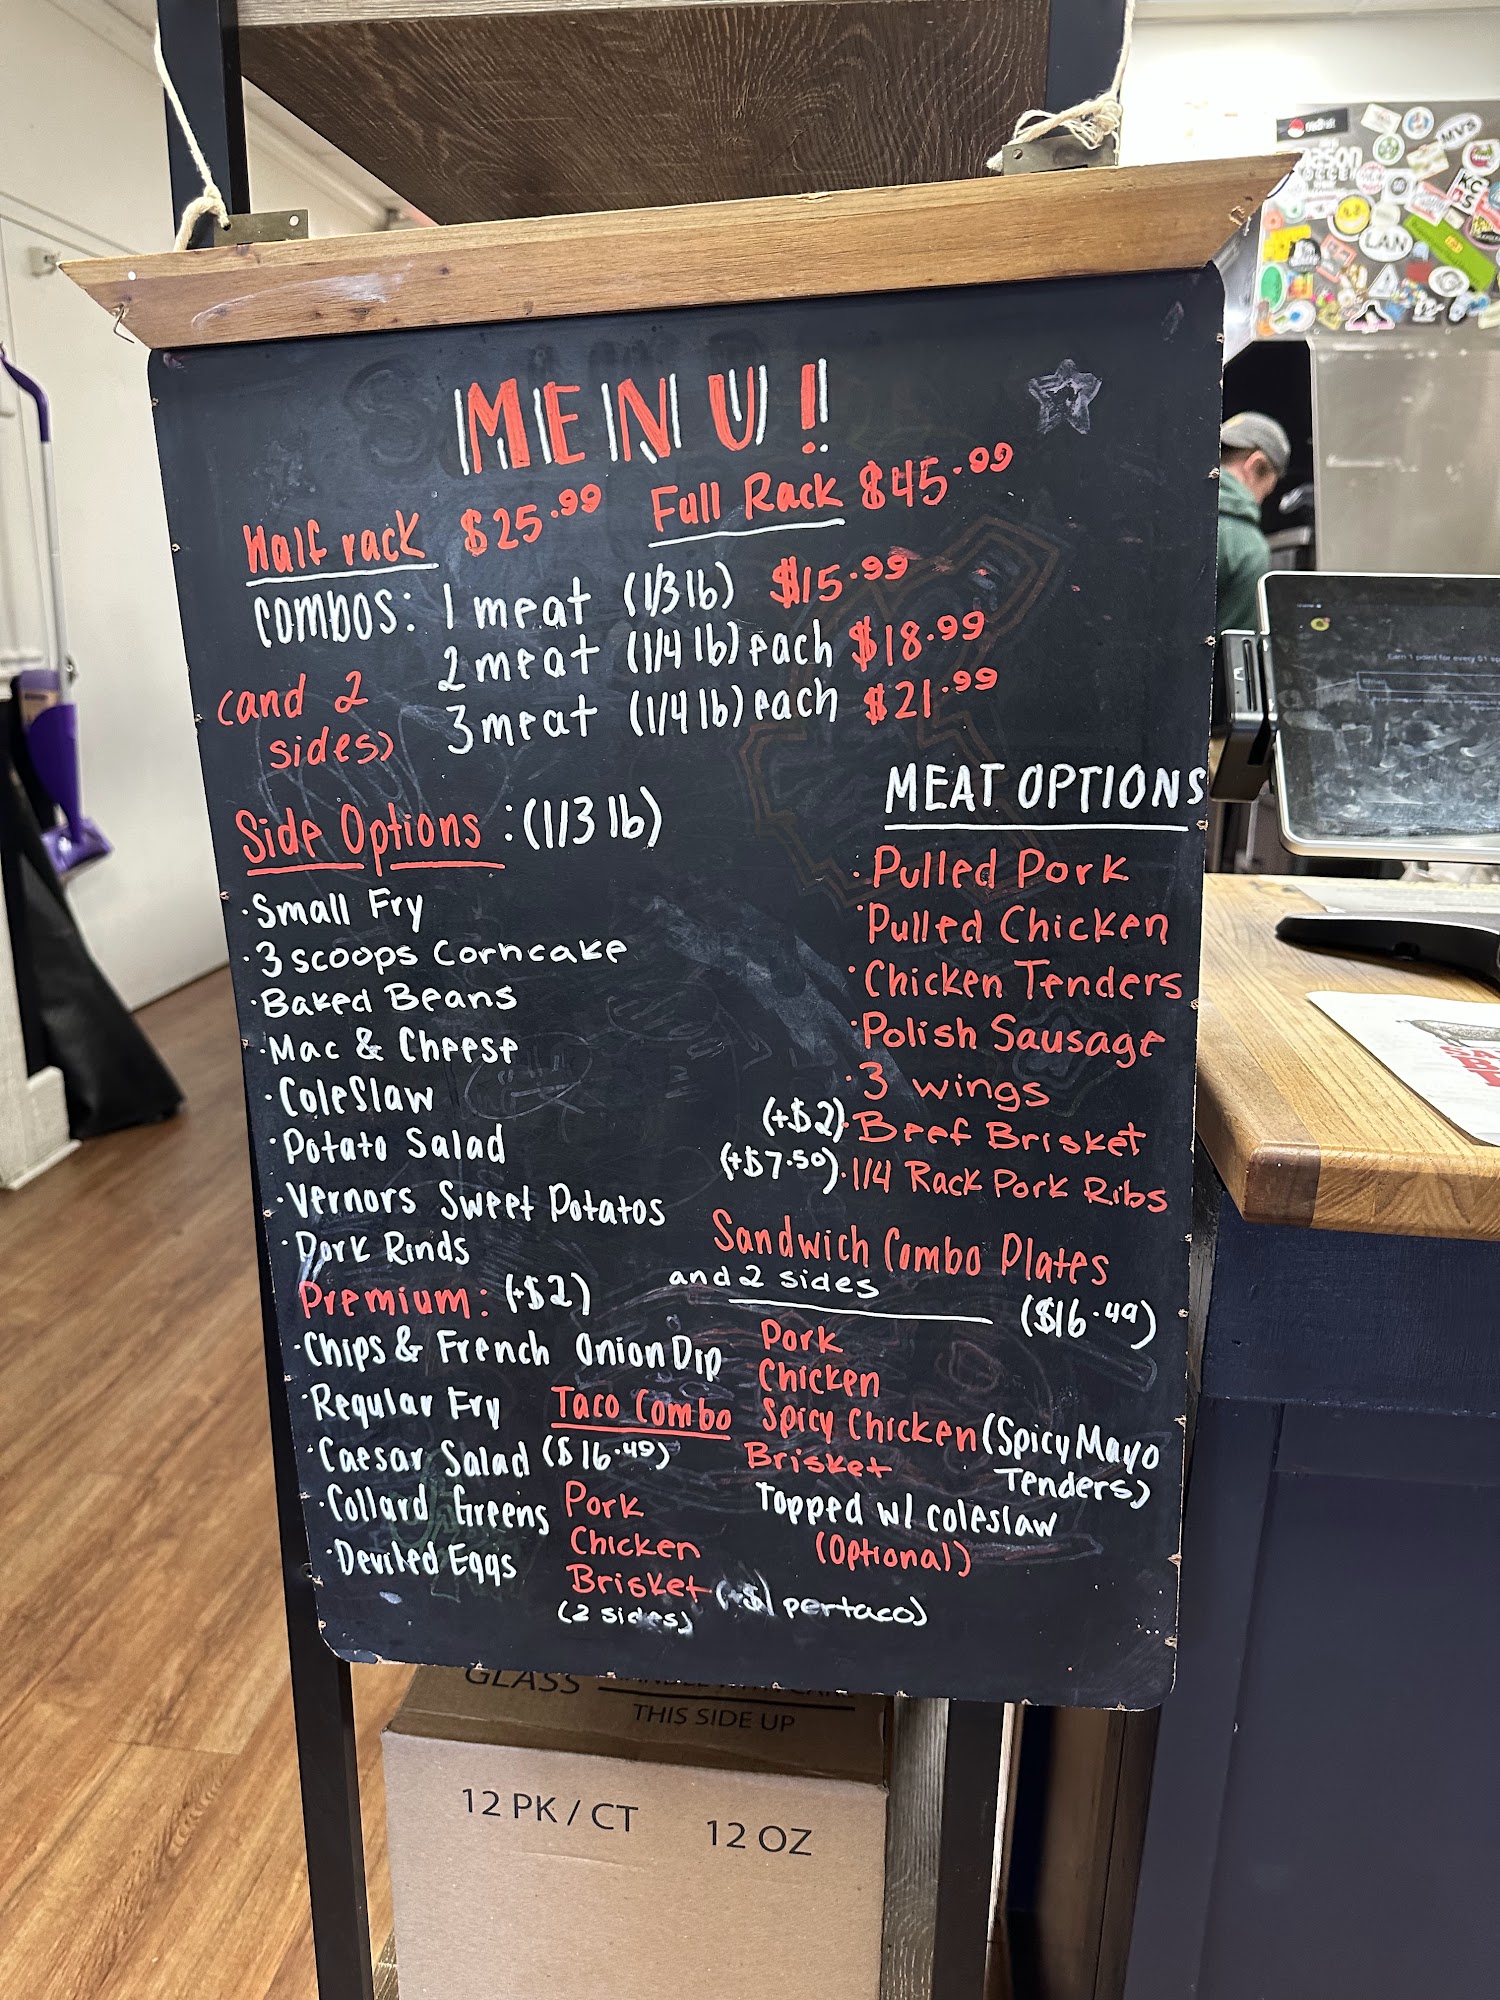 MENU!
Half rack $25.99 Full Rack $45.99
COMBOS: 1 meat (1/3 lb) $15.99
2 meat (1/4 lb) each $18.99
(and 2 sides)
3 meat (1/4 lb) each $21.99
Side Options : (1/3 lb)
· Small Fry
· 3 scoops Corncake
· Baked Beans
· Mac & Cheese
· ColeSlaw
· Potato Salad
· Vernors Sweet Potatos
· Pork Rinds
Premium: (+$2)
· Chips & French Onion Dip
· Regular Fry
· Caesar Salad
· Collard Greens
· Deviled Eggs
MEAT OPTIONS
· Pulled Pork
· Pulled Chicken
· Chicken Tenders
· Polish Sausage
· 3 wings
(+$2) · Beef Brisket
(+$7.50) · 1/4 Rack Pork Ribs
Sandwich Combo Plates
and 2 sides
($16.49)
Pork
Chicken
Spicy Chicken (Spicy Mayo
Tenders)
Brisket
Topped w/ coleslaw
(Optional)
Taco Combo
($16.49)
Pork
Chicken
Brisket (+$1 per taco)
(2 sides)
GLASS
THIS SIDE UP
12 PK / CT 12 OZ
LAN
MVS